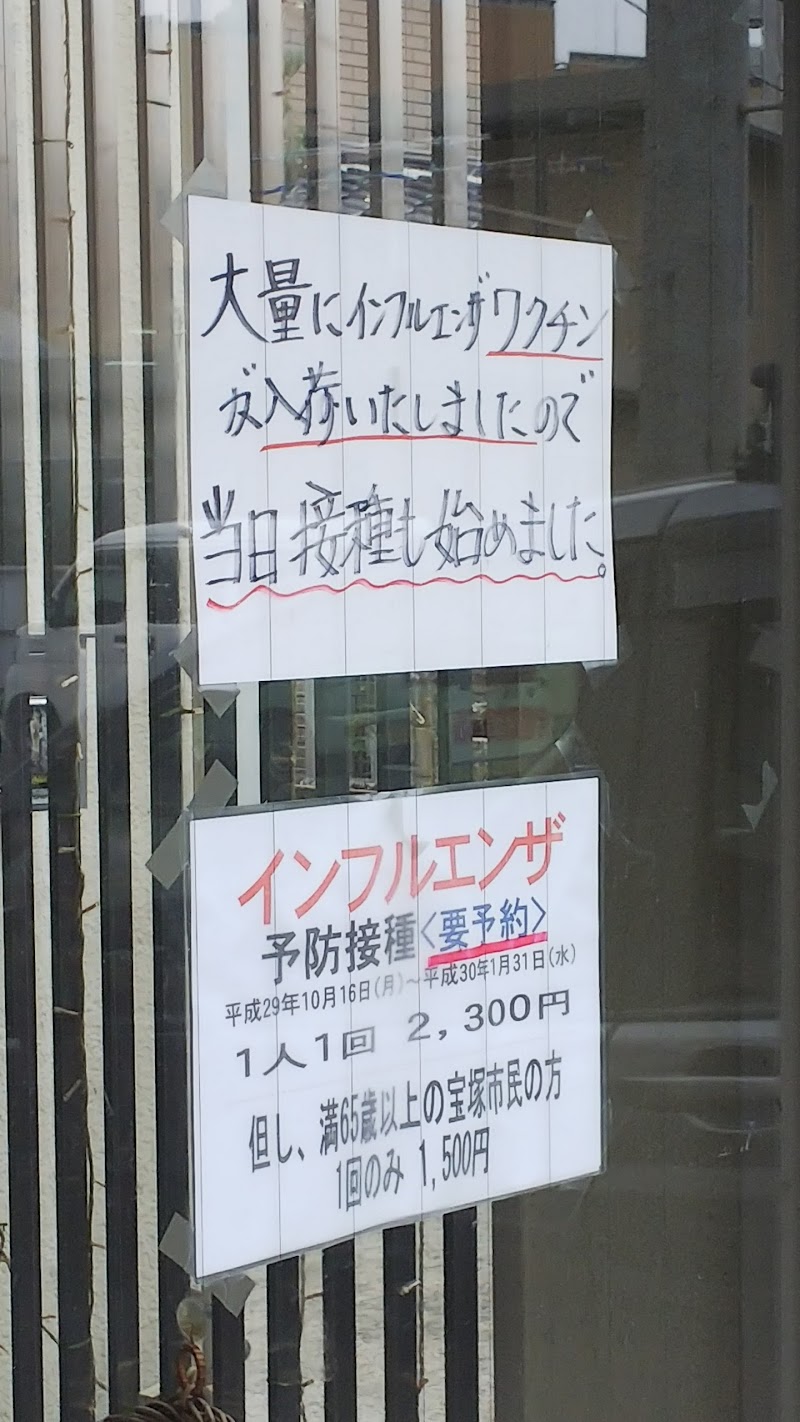 大量にインフルエンザワクチン
が入荷いたしましたので
当日接種も始めました。
インフルエンザ
予防接種<要予約>
平成29年10月16日(月)～平成30年1月31日(水)
1人1回 2,300円
但し、満65歳以上の宝塚市民の方
1回のみ 1,500円